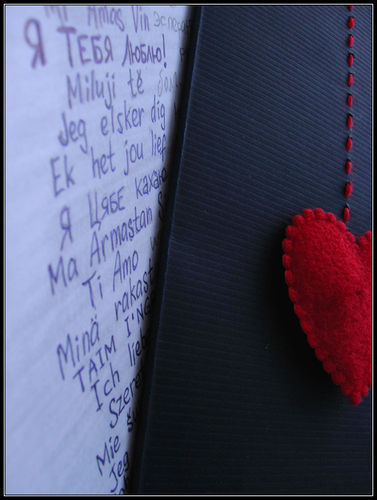 Mi Amas Vin
Я ТЕБЯ Люблю!
Miluji tě
Jeg elsker dig
Ek het jou lief
Я ЦЯБЕ кахаю
Ma Armastan
Ti Amo
Minä rakast
TAIM I'NG
Ich lieb
Szere
Mie
Jeg